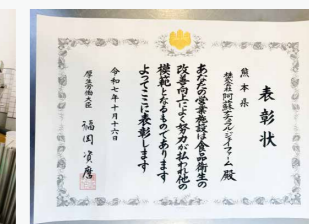 表彰状
熊本県
株式会社阿蘇エクルジイファーム 殿
あなたの営業施設は食品衛生の
改善向上によく努力が払われ他の
模範となるものであります
よってここに表彰します
令和七年十月十六日
厚生労働大臣 福岡資麿